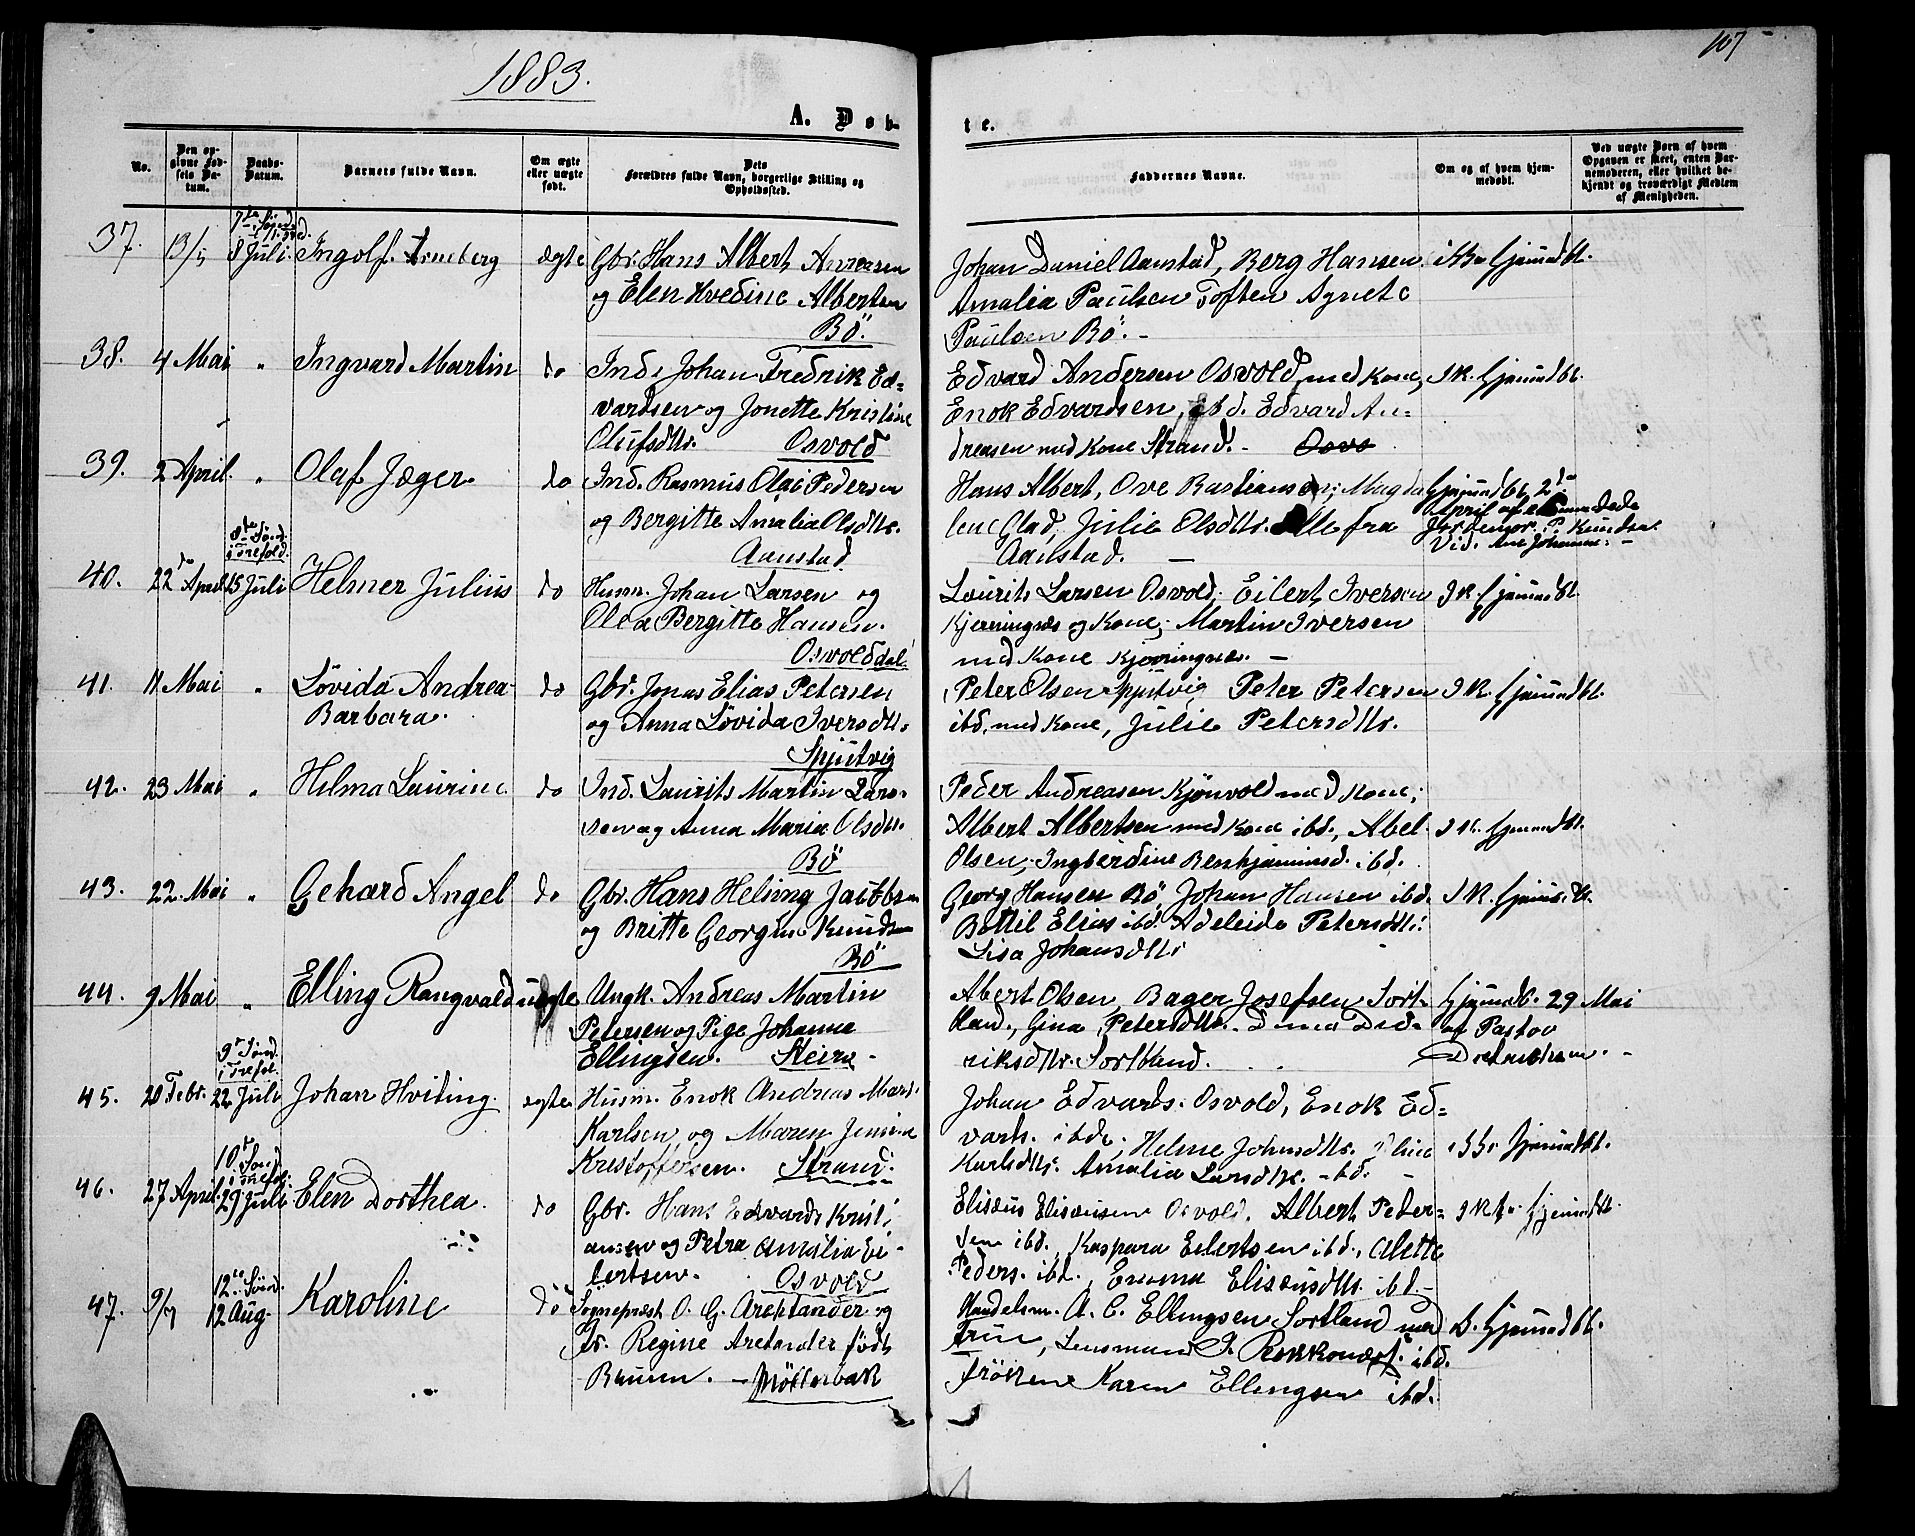 1883.
107
A. Døb-
te.
No.
Den opgivne Fødsels Datum.
Daabs-Datum.
Barnets fulde Navn.
Om ægte eller uægte født.
Dets Forældres fulde Navn, borgerlige Stilling og Opholdssted.
Faddernes Navne.
Om og af hvem hjemmedøbt.
Ved uægte Børn af hvem Opgaven er skeet, enten Barnemoderen, eller hvilket bekjendt og troværdigt Medlem af Menigheden.
37. 13/5 8 Juli. Ingolf Arneberg ægte Gbr. Hans Albert Andersen
og Elen Hvedine Albertsen
Bö.
Johan Daniel Aanstad, Berg Hansen
Amalia Paulsen Toften Agnete
Paulsen Bö. -
38. 4 Mai " Ingvard Martin do Ind. Johan Fredrik Ed=
vardsen og Jonette Kristine
Olufsdttr. Osvold
Edvard Andersen Osvold med Kone,
Enok Edvardsen, ibd. Edvard An=
dreasen med Kone Strand. -
39. 2 April. " Olaf Jæger do Ind. Rasmus Olai Pedersen
og Bergitte Amalia Olsdttr.
Aanstad
Hans Albert, Ove Bastiansen, Magda
lene Olad, Julie Olsdttr. Alle fra
Aanstad. -
Hjemmedbt. 2den
April af
Jordemor. P. Knudsen
8de Sönd.
i Trefold.
40. 22de April 15 Juli Helmer Julius do Husm. Johan Larsen og
Olea Bergitte Hansen.
Osvolddal.
Laurits Larsen Osvold, Eilert Iversen
Kjerringnæs og Kone, Martin Iversen
med Kone Kjerringnæs. -
I K. hjemmedbt.
41. 11 Mai " Lövida Andrea do Gbr. Jonas Elias Petersen
Barbara.
og Anna Lövida Iversdttr.
Spjutvig
Peter Olsen Spjutvig Peter Petersen
ibd, med Kone, Julie Petersdttr.
I K. hjemmedbt.
42. 23 Mai " Helma Laurine do Ind. Laurits Martin Lar-
sen og Anna Maria Olsdttr.
Bö
Peder Andreasen Kjönvold med Kone;
Albert Albertsen med Kone ibd., Abel
Olsen, Ingberdine Benhjaminsd. ibd.
I K. hjemmedbt.
43. 22 Mai " Gehard Angel do Gbr. Hans Helsing Jacobsen
og Britte Georgine Knudsen
Bö
Georg Hansen Bö, Johan Hansen ibd.
Bottil Elias ibd. Adeleide Petersdttr.
Lisa Johansdttr.
I K.
44. 9 Mai " Elling Rangvald uægte Ungk. Andreas Martin
Petersen og Pige Johanna
Ellingsen. Steiro -
Abert Olsen, Bager Josefsen Sort-
land., Gina Petersdttr. Dina Did-
riksdttr. Sortland.
Hjemmedb. 29 Mai
af Pastor
9de Sönd.
i Trefol.
45. 20 Febr. 22 Juli Johan Hviting. ægte Husm. Enok Andreas Mart.
Karlsen og Maren Jensine
Kristoffersen. Strand.
Johan Edvards. Osvold, Enok Ed=
vards. ibd. Helene Johnsdttr.
Karlsdttr. Amalia Larsdttr. ibd. -
10de Sönd.
i Trefol.
46. 27 April. 29 Juli Elen Dorthea. do Gbr. Hans Edvards Kristi
ansen og Petra Amalia Ei-
lertsen. Osvold
Elisæus Elisæusen Osvold. Albert Peder=
sen ibd., Kaspara Eilertsen ibd., Alette
Peders. ibd., Emma Elisæusdttr. ibd. -
12te Sönd.
47. 9/7 12 Aug. Karoline do Sognepræst O. G. Arctander og
Fr. Regine Arctander født
Bruun. - Möllerbak
Handelsm. A. C. Ellingsen Sortland med
Frue, Lensmand ibd.
Fröken Karen Ellingsen ibd.